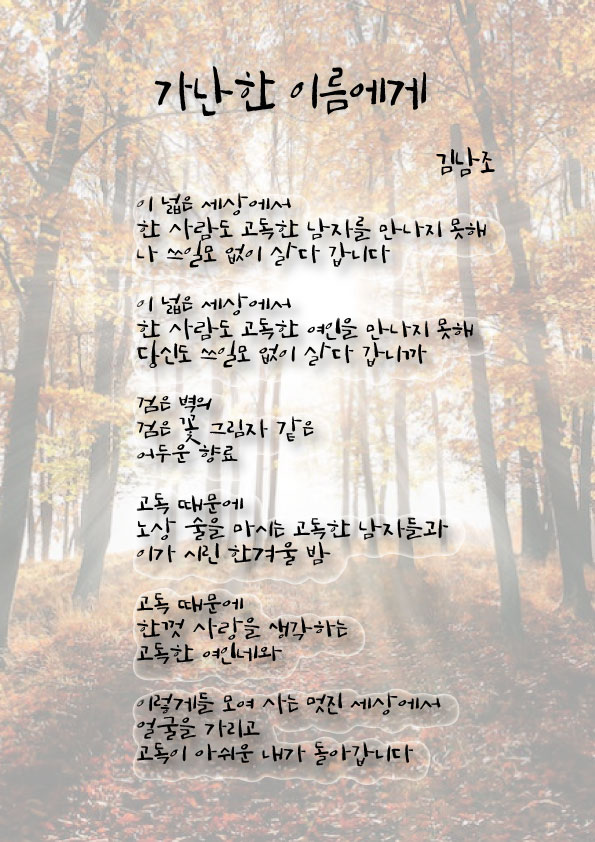 가난한 이름에게
김남조
이 넓은 세상에서
한 사람도 고독한 남자를 만나지 못해
나 쓰일모 없이 살다 갑니다
이 넓은 세상에서
한 사람도 고독한 여인을 만나지 못해
당신도 쓰일모 없이 살다 갑니까
검은 벽의
검은 꽃 그림자 같은
어두운 향료
고독 때문에
노상 술을 마시는 고독한 남자들과
이가 시린 한겨울 밤
고독 때문에
한껏 사랑을 생각하는
고독한 여인네와
이렇게들 모여 사는 멋진 세상에서
얼굴을 가리고
고독이 아쉬운 내가 돌아갑니다